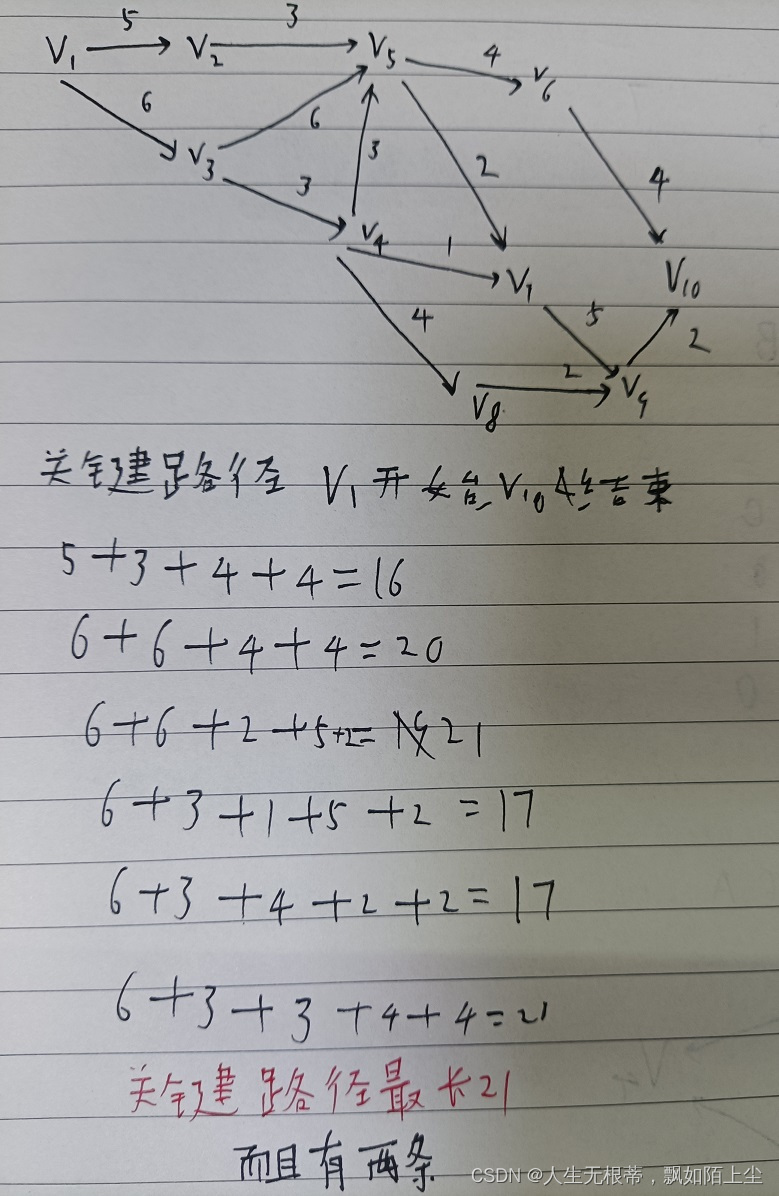 V₁ 5 V₂ 3 V₅ 4 V₆
6 V₃ 6 3 2 4
3 V₄ 1 V₇ V₁₀
4 5 2
V₈ 2 V₉
关钅建路径 V₁开始V₁₀结束
5+3+4+4=16
6+6+4+4=20
6+6+2+5+2=21
6+3+1+5+2=17
6+3+4+2+2=17
6+3+3+4+4=21
关钅建路径最长21
而且有两条
CSDN @人生无根蒂，飘如陌上尘